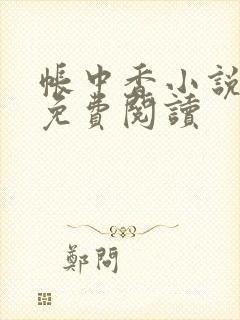 帳中香小說
免費閱讀
鄭問